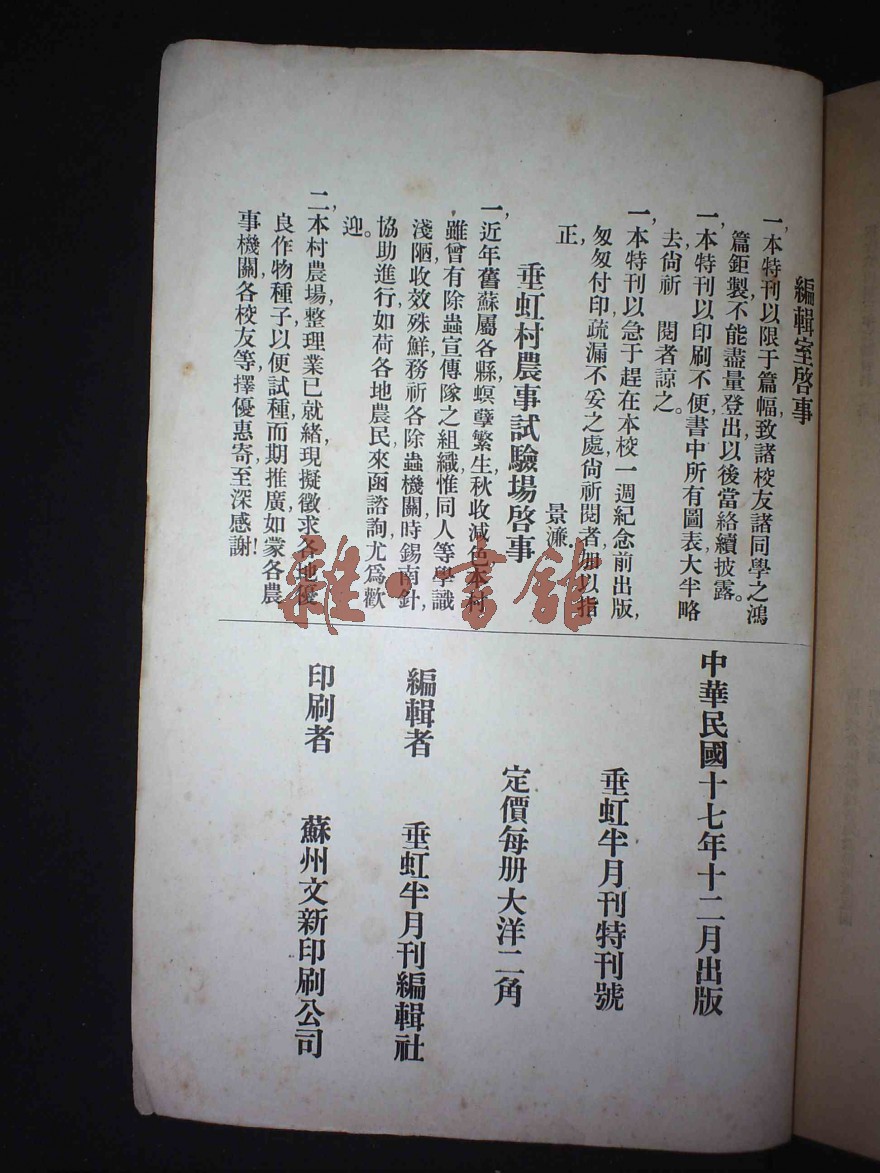 編輯室啓事
一，本特刊以限于篇幅，致諸校友諸同學之鴻
篇鉅製不能盡量登出以後當絡續披露。
一，本特刊以印刷不便，書中所有圖表大半略
去，尙祈　閱者諒之。
一，本特刊以急于趕在本校一週紀念前出版，
匆匆付印，疏漏不妥之處尙祈閱者，加以指
正，
景濂．
垂虹村農事試驗場啓事
一，近年舊蘇屬各縣，螟孽繁生，秋收減色，本村
雖曾有除蟲宣傳隊之組織，惟同人等學識
淺陋，收效殊鮮，務祈各除蟲機關，時錫南針，
協助進行，如荷各地農民來函諮詢，尤爲歡
迎。
二，本村農場，整理業已就緒，現擬徵求各地優
良作物種子，以便試種，而期推廣，如蒙各農
事機關，各校友等，擇優惠寄，至深感謝！
中華民國十七年十二月出版
垂虹半月刊特刊號
定價每册大洋二角
編輯者　垂虹半月刊編輯社
印刷者　蘇州文新印刷公司
雜·書館